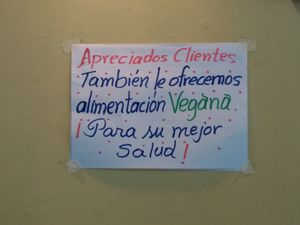 Apreciados Clientes
También le ofrecemos
alimentación Vegana
¡Para su mejor
Salud!